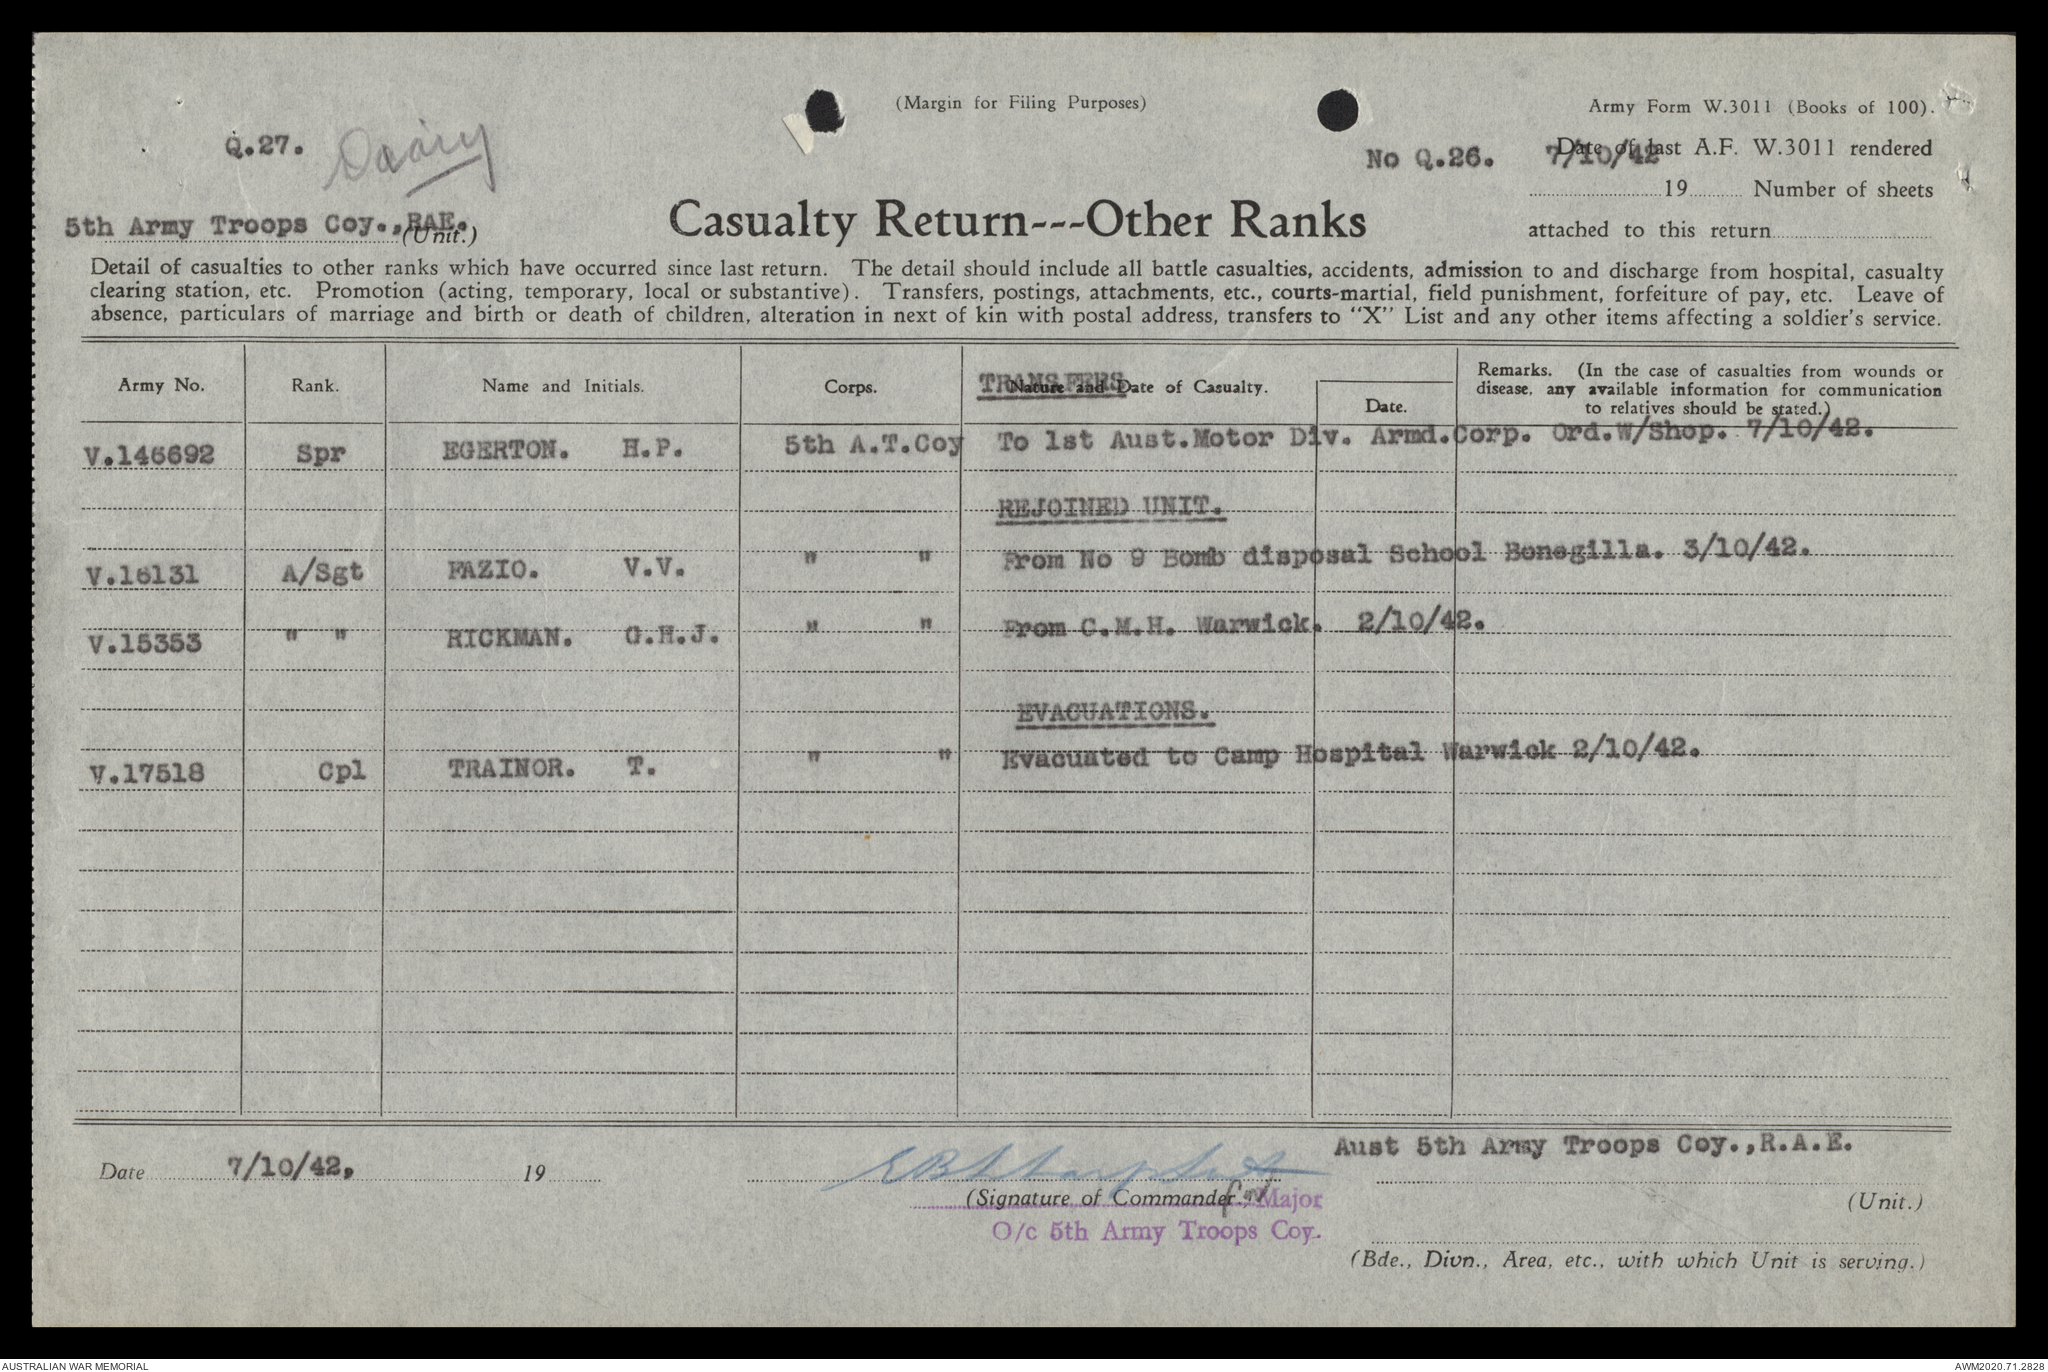 (Margin for Filing Purposes)
Army Form W.3011 (Books of 100).
Q.27. Daairy
No Q.26. 7/10/42
Date of last A.F. W.3011 rendered
19 Number of sheets
attached to this return
5th Army Troops Coy.,RAE.
(Unit.)
Casualty Return---Other Ranks
Detail of casualties to other ranks which have occurred since last return. The detail should include all battle casualties, accidents, admission to and discharge from hospital, casualty
clearing station, etc. Promotion (acting, temporary, local or substantive). Transfers, postings, attachments, etc., courts-martial, field punishment, forfeiture of pay, etc. Leave of
absence, particulars of marriage and birth or death of children, alteration in next of kin with postal address, transfers to "X" List and any other items affecting a soldier's service.
Army No. Rank. Name and Initials. Corps. Nature and Date of Casualty. Date.
Remarks. (In the case of casualties from wounds or
disease, any available information for communication
to relatives should be stated.)
TRANSFERS
V.146692 Spr EGERTON. H.P. 5th A.T.Coy To 1st Aust.Motor Div. Armd.Corp. Ord.W/Shop. 7/10/42.
REJOINED UNIT.
V.16131 A/Sgt FAZIO. V.V. " " From No 9 Bomb disposal School Bonegilla. 3/10/42.
V.15353 " " RICKMAN. G.H.J. " " From C.M.H. Warwick. 2/10/42.
EVACUATIONS.
V.17518 Cpl TRAINOR. T. " " Evacuated to Camp Hospital Warwick 2/10/42.
Date 7/10/42, 19
(Signature of Commander.) Major
O/c 5th Army Troops Coy.
Aust 5th Army Troops Coy.,R.A.E.
(Unit.)
(Bde., Divn., Area, etc., with which Unit is serving.)
AUSTRALIAN WAR MEMORIAL
AWM2020.71.2828